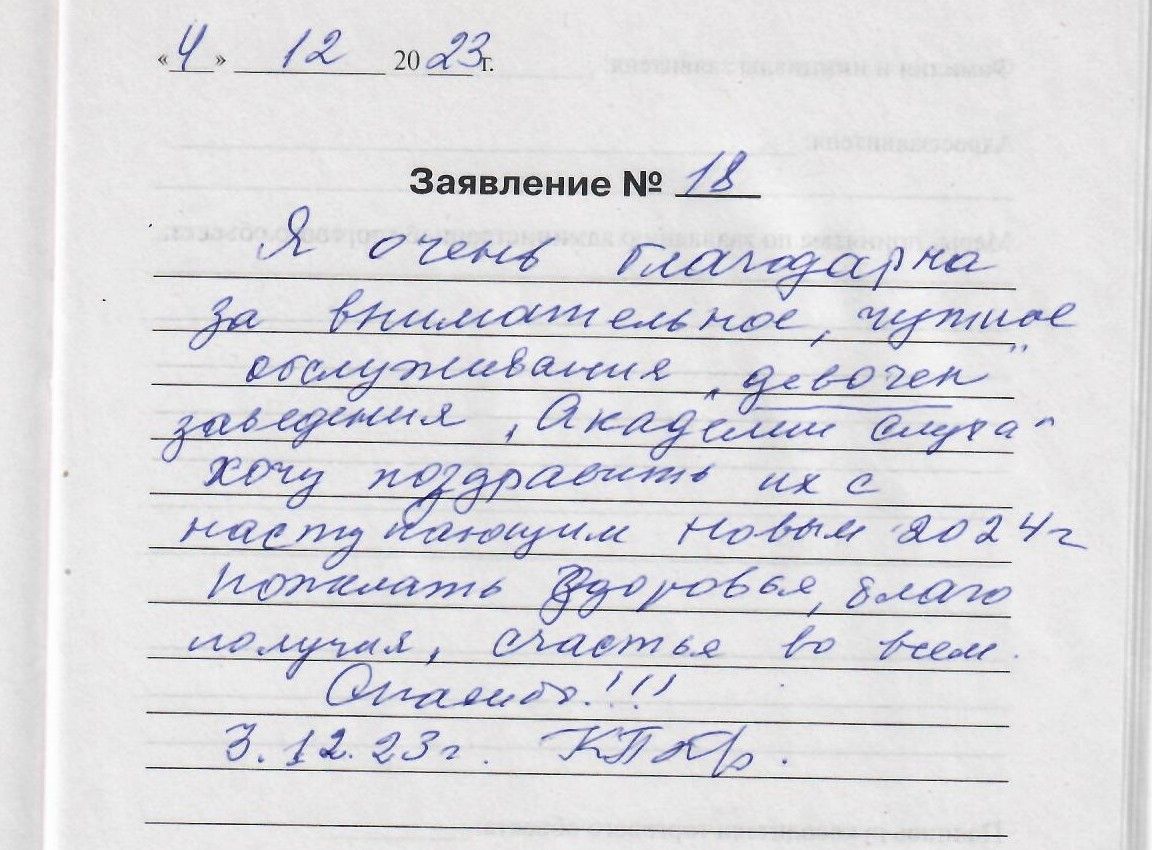 «4» 12 2023 г.
Заявление № 18
Я очень благодарна
за внимательное, чуткое
обслуживания „девочек"
заведения „Академии слуха"
хочу поздравить их с
наступающим Новым 2024г
пожелать Здоровья, благо
получия, счастья во всем.
Спасибо!!!
3.12.23г.